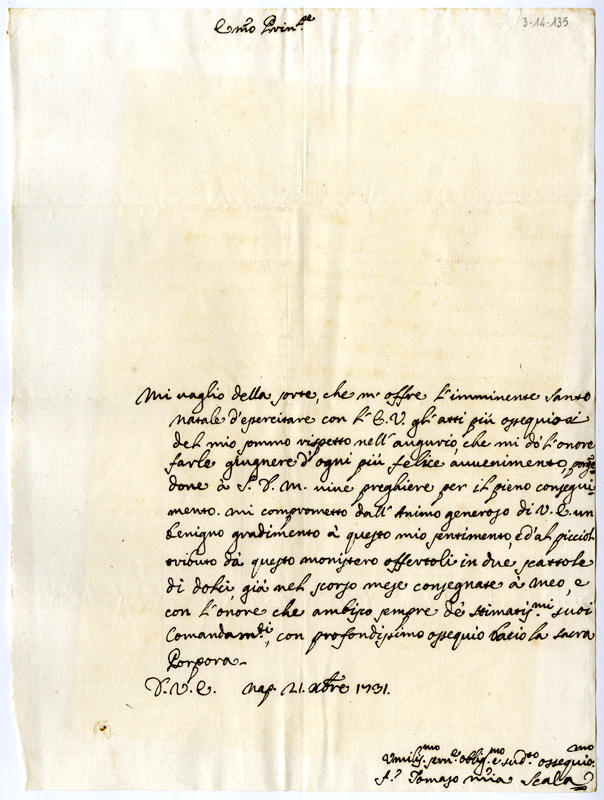 3-14-135
Emo Prin.pe
Mi vaglio della sorte, che m'offre l'imminente Santo
Natale d'esercitare con l'E.V. gl'atti più ossequiosi
del mio sommo rispetto nell'augurio, che mi dò l'onore
farle giugnere d'ogni più felice avvenimento, porgē
done à S. D. M. vive preghiere per il pieno consegui
mento. Mi comprometto dall'Animo generoso di V. E. un
benigno gradimento à questo mio sentimento, ed'al picciol
tributo dà questo monistero offertoli in due scattole
di dolci, già nel scorso mese consegnate à Meo, e
con l'onore che ambisco sempre de' stimatis.mi suoi
Comandam.ti, con profondissimo ossequio bacio la sacra
Porpora.
D. V. E. Nap. 21. Xbre 1731.
Umilis.mo ser.e oblig.mo e sud.to ossequio.mo
F. Tomaso M.a Scala